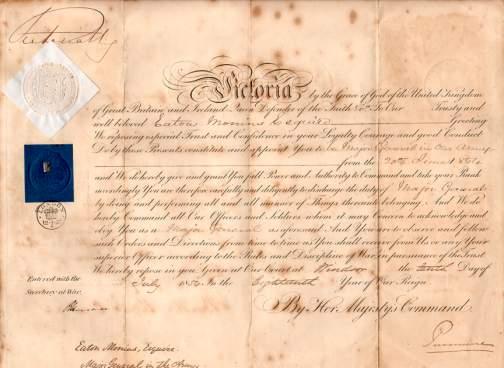 Victoria by the Grace of God of the United Kingdom
of Great Britain and Ireland Queen Defender of the Faith &c. To Our Trusty and
well beloved Eaton Monins Esquire Greeting
We reposing especial Trust and Confidence in your Loyalty Courage and good Conduct
Do by these Presents constitute and appoint You to be Major General in Our Army
from the 20th June 1854
and We do hereby give and grant You full Power and Authority to Command and take your Rank
accordingly You are therefore carefully and diligently to discharge the duty of Major General
by doing and performing all and all manner of Things thereunto belonging. And We do
hereby Command all Our Officers and Soldiers whom it may Concern to acknowledge and
obey You as a Major General as aforesaid And You are to observe and follow
such Orders and Directions from time to time as You shall receive from Us or any Your
superior Officer according to the Rules and Discipline of War in pursuance of the Trust
We hereby repose in you Given at Our Court at Windsor the Day of
July In the Year of Our Reign
Entered with the
Secretary at War.
By Her Majesty's Command
Eaton Monins, Esquire
Major General in the Army